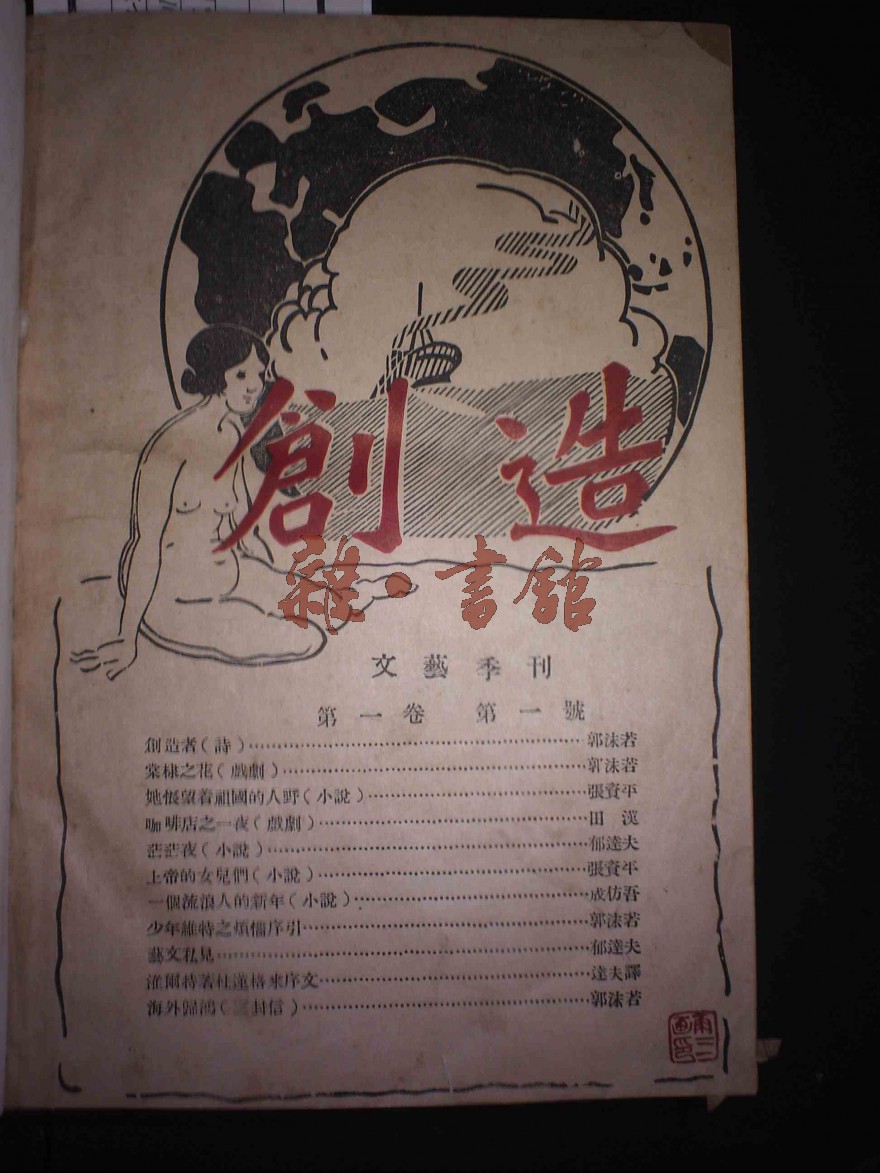 創造
雜·書館
文藝季刊
第一卷 第一號
創造者(詩)……郭沫若
棠棣之花(戲劇)……郭沫若
她悵望着祖國的人野(小說)……張資平
咖啡店之一夜(戲劇)……田 漢
茫茫夜(小說)……郁達夫
上帝的女兒們(小說)……張資平
一個流浪人的新年(小說)……成仿吾
少年維特之煩惱序引……郭沫若
藝文私見……郁達夫
淮爾特著杜蓮格來序文……達夫譯
海外歸鴻(三封信)……郭沫若